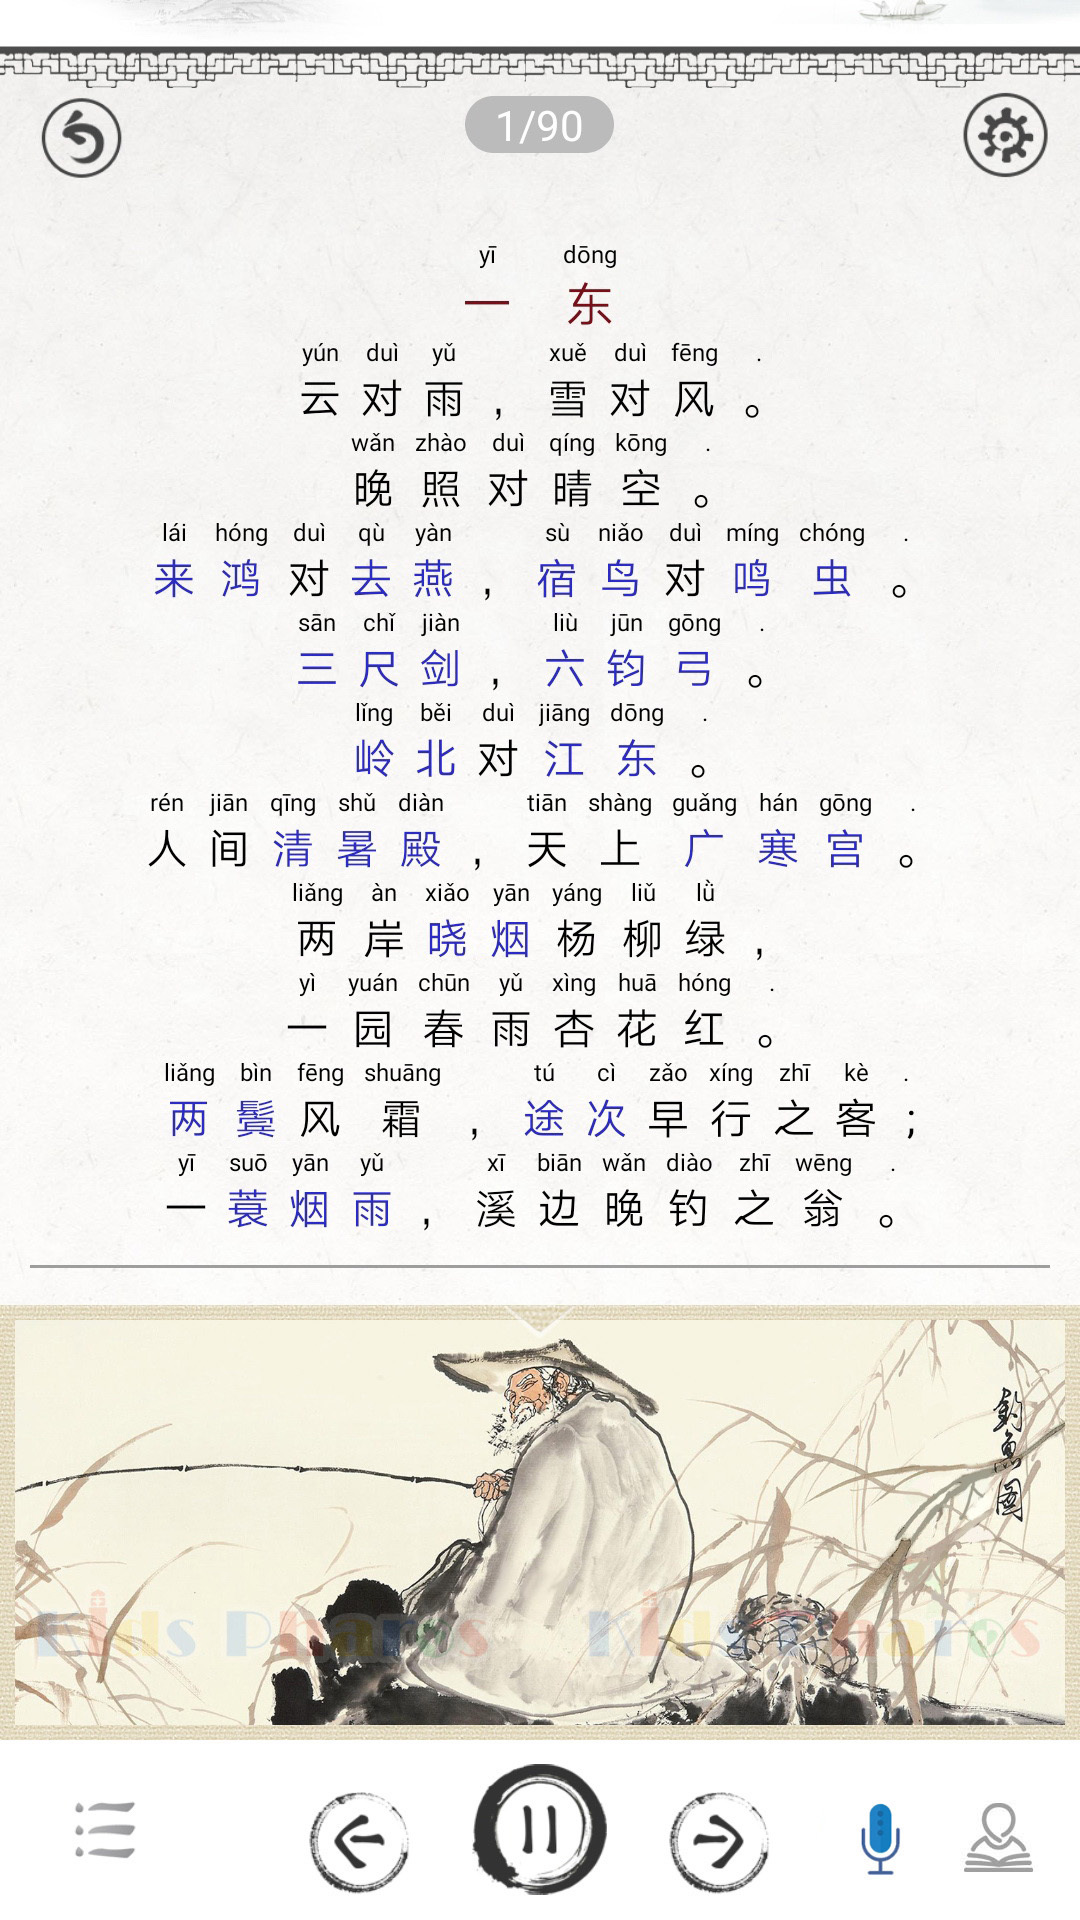 1/90
yī dōng
一 东
yún duì yǔ xuě duì fēng .
云对雨，雪对风。
wǎn zhào duì qíng kōng .
晚照对晴空。
lái hóng duì qù yàn sù niǎo duì míng chóng .
来鸿对去燕，宿鸟对鸣虫。
sān chǐ jiàn liù jūn gōng .
三尺剑，六钧弓。
lǐng běi duì jiāng dōng .
岭北对江东。
rén jiān qīng shǔ diàn tiān shàng guǎng hán gōng .
人间清暑殿，天上广寒宫。
liǎng àn xiǎo yān yáng liǔ lǜ
两岸晓烟杨柳绿，
yì yuán chūn yǔ xìng huā hóng .
一园春雨杏花红。
liǎng bìn fēng shuāng tú cì zǎo xíng zhī kè .
两鬓风霜，途次早行之客；
yī suō yān yǔ xī biān wǎn diào zhī wēng .
一蓑烟雨，溪边晚钓之翁。
釣魚図
Kids Pharos Kids Pharos